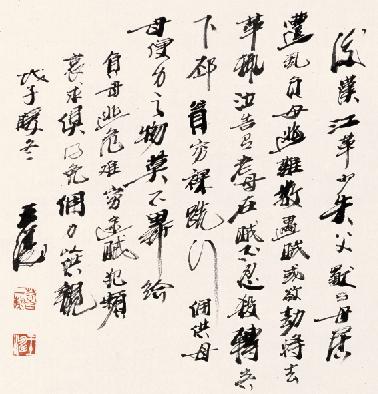 後漢江革少失父獻与母居
遭亂負母逃難數遇賊或欲劫將去
革輒泣告有老母在賊不忍殺轉客
下邳貧窮裸跣行佣供母
母便身之物莫不畢給
負母逃危難窮途賊犯頻
哀求俱得免佣力以供親
戊子冬